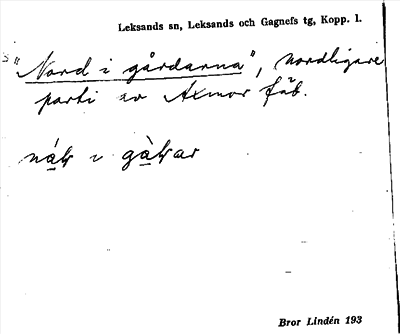 Leksands sn, Leksands och Gagnefs tg, Kopp. l.
"Nord i gårdarna", nordligare
parti av Axmor fäb.
i
Bror Lindén 193